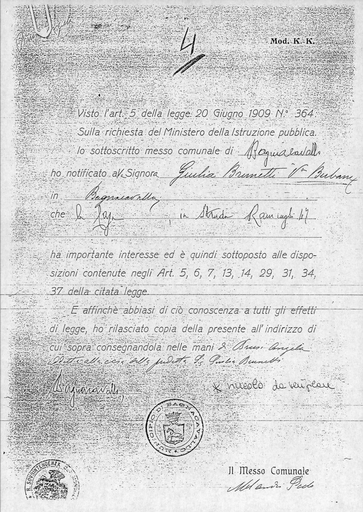 4
Mod. K. K.
Visto l'art. 5 della legge 20 Giugno 1909 N.° 364
Sulla richiesta del Ministero della Istruzione pubblica.
Io sottoscritto messo comunale di Bagnacavallo
ho notificato al Signora Giulia Brunetti Va
in Bagnacavallo
che la in Strada 47
ha importante interesse ed è quindi sottoposto alle dispo-
sizioni contenute negli Art. 5, 6, 7, 13, 14, 29, 31, 34,
37 della citata legge.
E affinchè abbiasi di ciò conoscenza a tutti gli effetti
di legge, ho rilasciato copia della presente all'indirizzo di
cui sopra consegnandola nelle mani di Angela
della predetta Giulia Brunetti
Bagnacavallo
MUNICIPIO DI BAGNACAVALLO
Il Messo Comunale